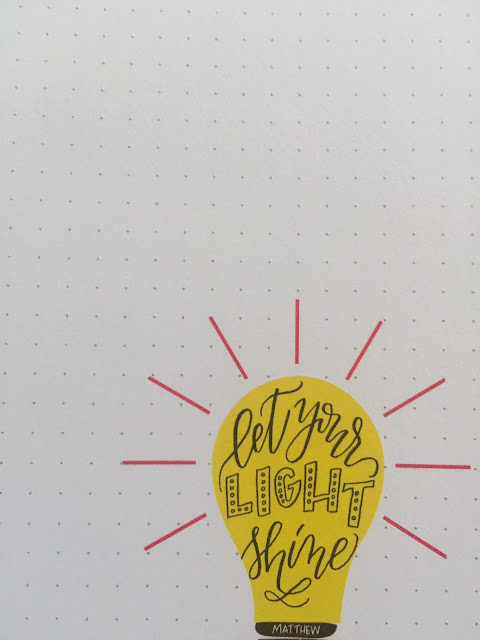 let your
LIGHT
shine
MATTHEW